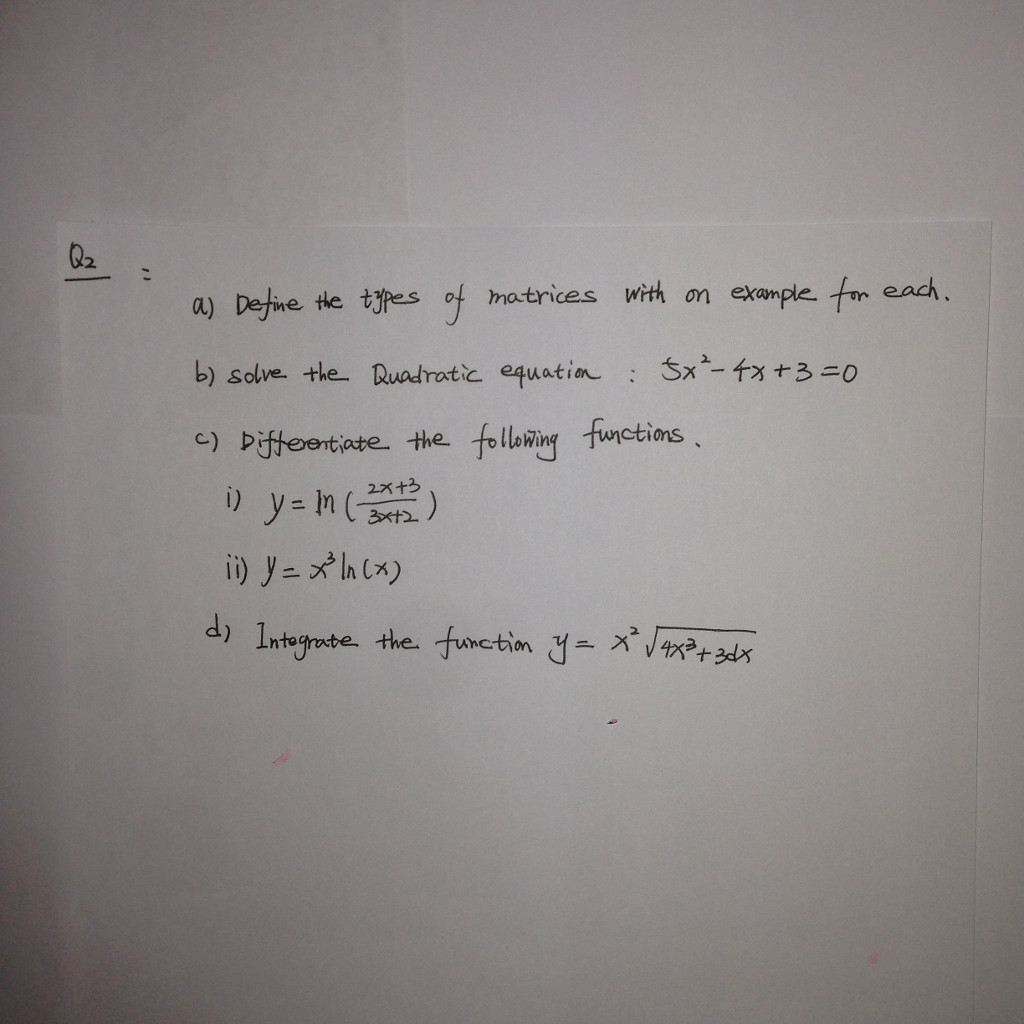 Q2 :
a) Define the types of matrices with on example for each.
b) solve the Quadratic equation : 5x² - 4x + 3 = 0
c) Differentiate the following functions.
i) y = ln ( (2x+3)/(3x+2) )
ii) y = x³ ln(x)
d) Integrate the function y = x² √(4x³ + 3dx)